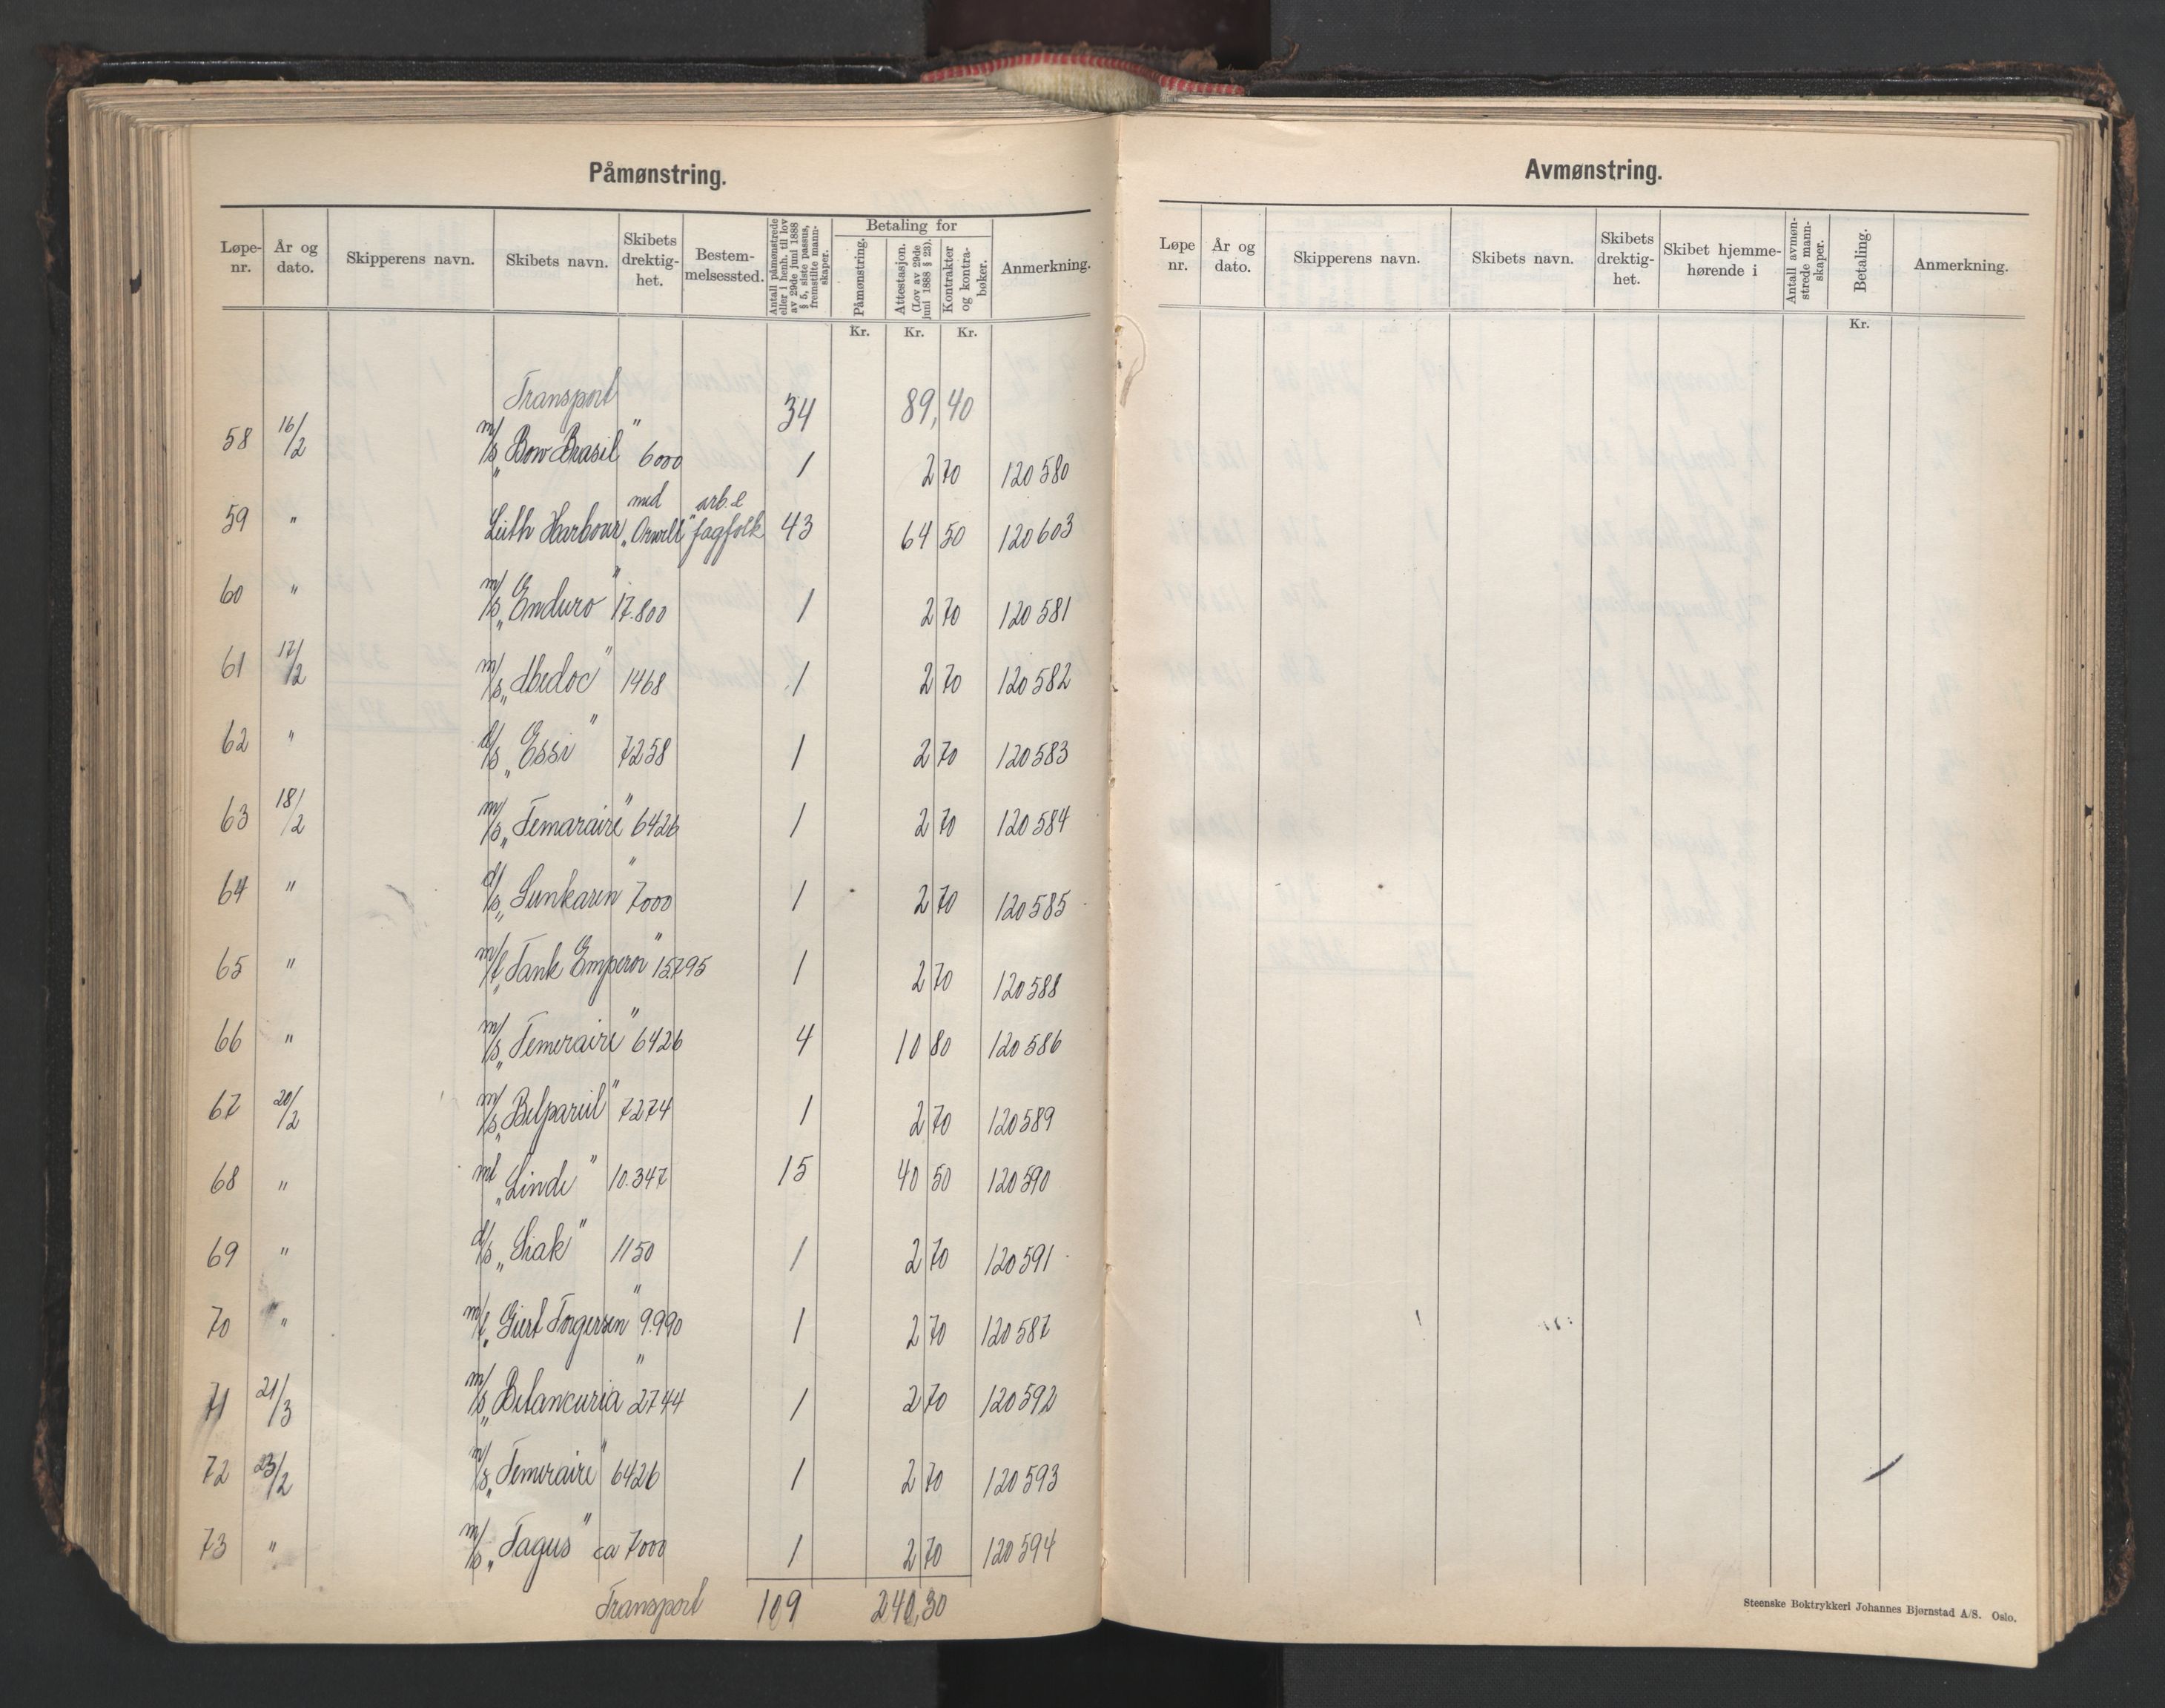 Påmønstring.
Løpe-nr. År og dato. Skipperens navn. Skibets navn. Skibets drektig-het. Bestem-melsessted. Antall påmønstrede eller i henh. til lov av 29de juni 1888 § 5, siste passus, fremstillte mann-skaper. Betaling for Påmønstring. Attestasjon. (Lov av 29de juni 1888 § 23). Kontrakter og kontra-bøker. Anmerkning.
Kr. Kr. Kr.
Transport 34 89,40
58 16/2 m/s „Bow Brasil" 6000 1 2 70 120580
59 " Leith Harbour med „Orwell" arb. & fagfolk 43 64 50 120603
60 " m/s „Enduro" 17.800 1 2 70 120581
61 17/2 m/s „Medoc" 1468 1 2 70 120582
62 " d/s „Essi" 7258 1 2 70 120583
63 18/2 m/s „Temaraire" 6426 1 2 70 120584
64 " d/s „Sunkaren" 7000 1 2 70 120585
65 " m/t „Tank Emperor" 15795 1 2 70 120588
66 " m/s „Temeraire" 6426 4 10 80 120586
67 20/2 m/s „Belpareil" 7274 1 2 70 120589
68 " mt „Linde" 10.347 15 40 50 120590
69 " d/s „Siak" 1150 1 2 70 120591
70 " m/t „Giert Torgersen" 9.990 1 2 70 120587
71 21/3 m/s „Betancuria" 2744 1 2 70 120592
72 23/2 m/s „Temeraire" 6426 1 2 70 120593
73 " m/s „Tagus" ca 7000 1 2 70 120594
Transport 109 240,30
Avmønstring.
Løpe nr. År og dato. Skipperens navn. Skibets navn. Skibets drektig-het. Skibet hjemme-hørende i Antall avmøn-strede mann-skaper. Betaling. Anmerkning.
Kr.
Steenske Boktrykkeri Johannes Bjørnstad A/S. Oslo.